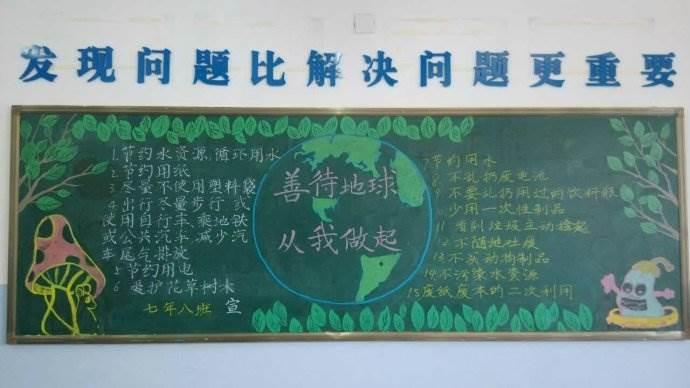 发现问题比解决问题更重要
善待地球
从我做起
1.节约水资源,循环用水
2.节约用纸
3.尽量不使用塑料袋
4.出行尽量步行 或
使用自行车、乘地铁
或公共汽车、减少汽
车尾气排放
5节约用电
6 爱护花草树木
七年八班 宣
7节约用水
8 不乱扔废电池
9 不要乱扔用过的饮料瓶
少用一次性制品
11 看到垃圾主动捡起
12 不随地吐痰
13 不买动物制品
14不污染水资源
15废纸废本的二次利用